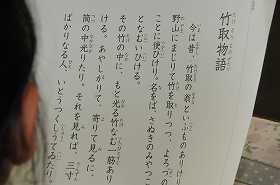 竹取物語
今は昔、竹取の翁といふものありけり
野山にまじりて竹を取りつつ、よろづの
ことに使ひけり。名をば、さぬきのみやつこ
となむいひける。
その竹の中に、もと光る竹なむ一筋あり
ける。あやしがりて、寄りて見るに、
筒の中光りたり。それを見れば、三寸
ばかりなる人、いとうつくしうてゐたり。